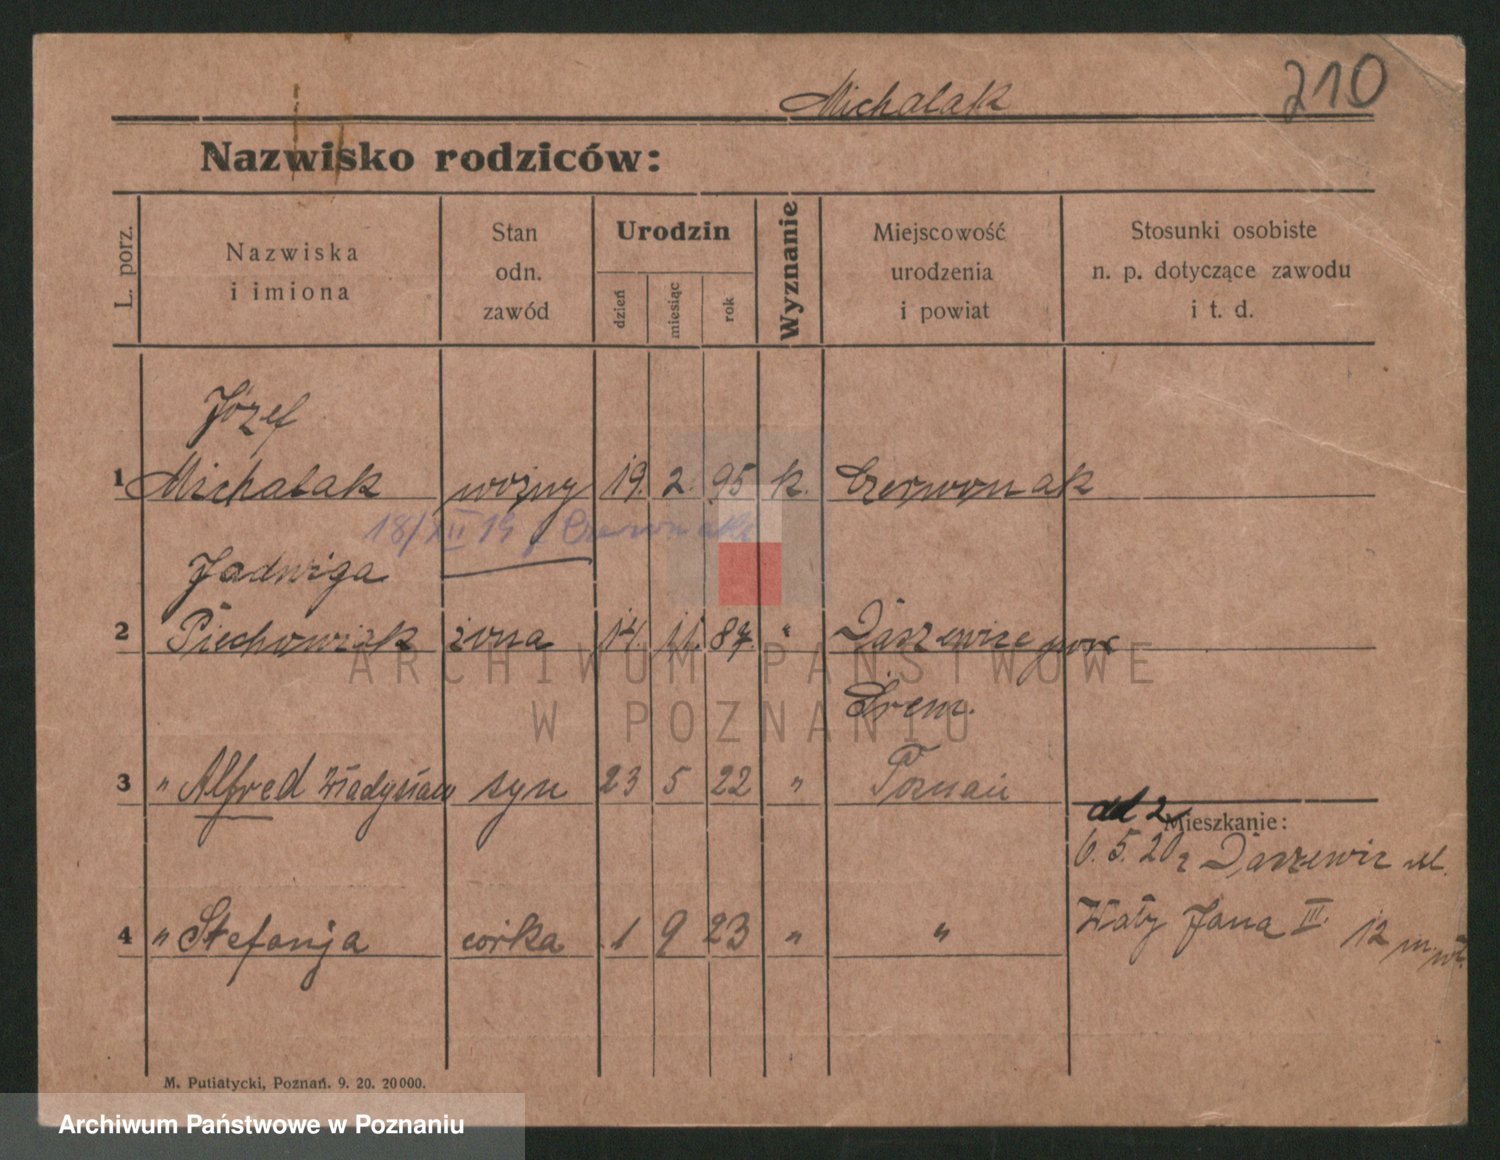 210
Michalak
Nazwisko rodziców:
L. porz.
Nazwiska
i imiona
Stan
odn.
zawód
Urodzin
dzień
miesiąc
rok
Wyznanie
Miejscowość
urodzenia
i powiat
Stosunki osobiste
n. p. dotyczące zawodu
i t. d.
Józef
1 Michalak woźny 19. 2. 95 k. Czerwonak
18/XII 19 Czerwonak
Jadwiga
2 Piechowiak żona 14. 11. 87. " Daszewice pow
Śrem.
3 " Alfred Władysław syn 23 5 22 " Poznań
Mieszkanie:
6. 5. 20 z Daszewic
4 " Stefanja córka 1 9 23 " "
Wały Jana III. 12
M. Putiatycki, Poznań. 9. 20. 20000.
ARCHIWUM PAŃSTWOWE
W POZNANIU
Archiwum Państwowe w Poznaniu